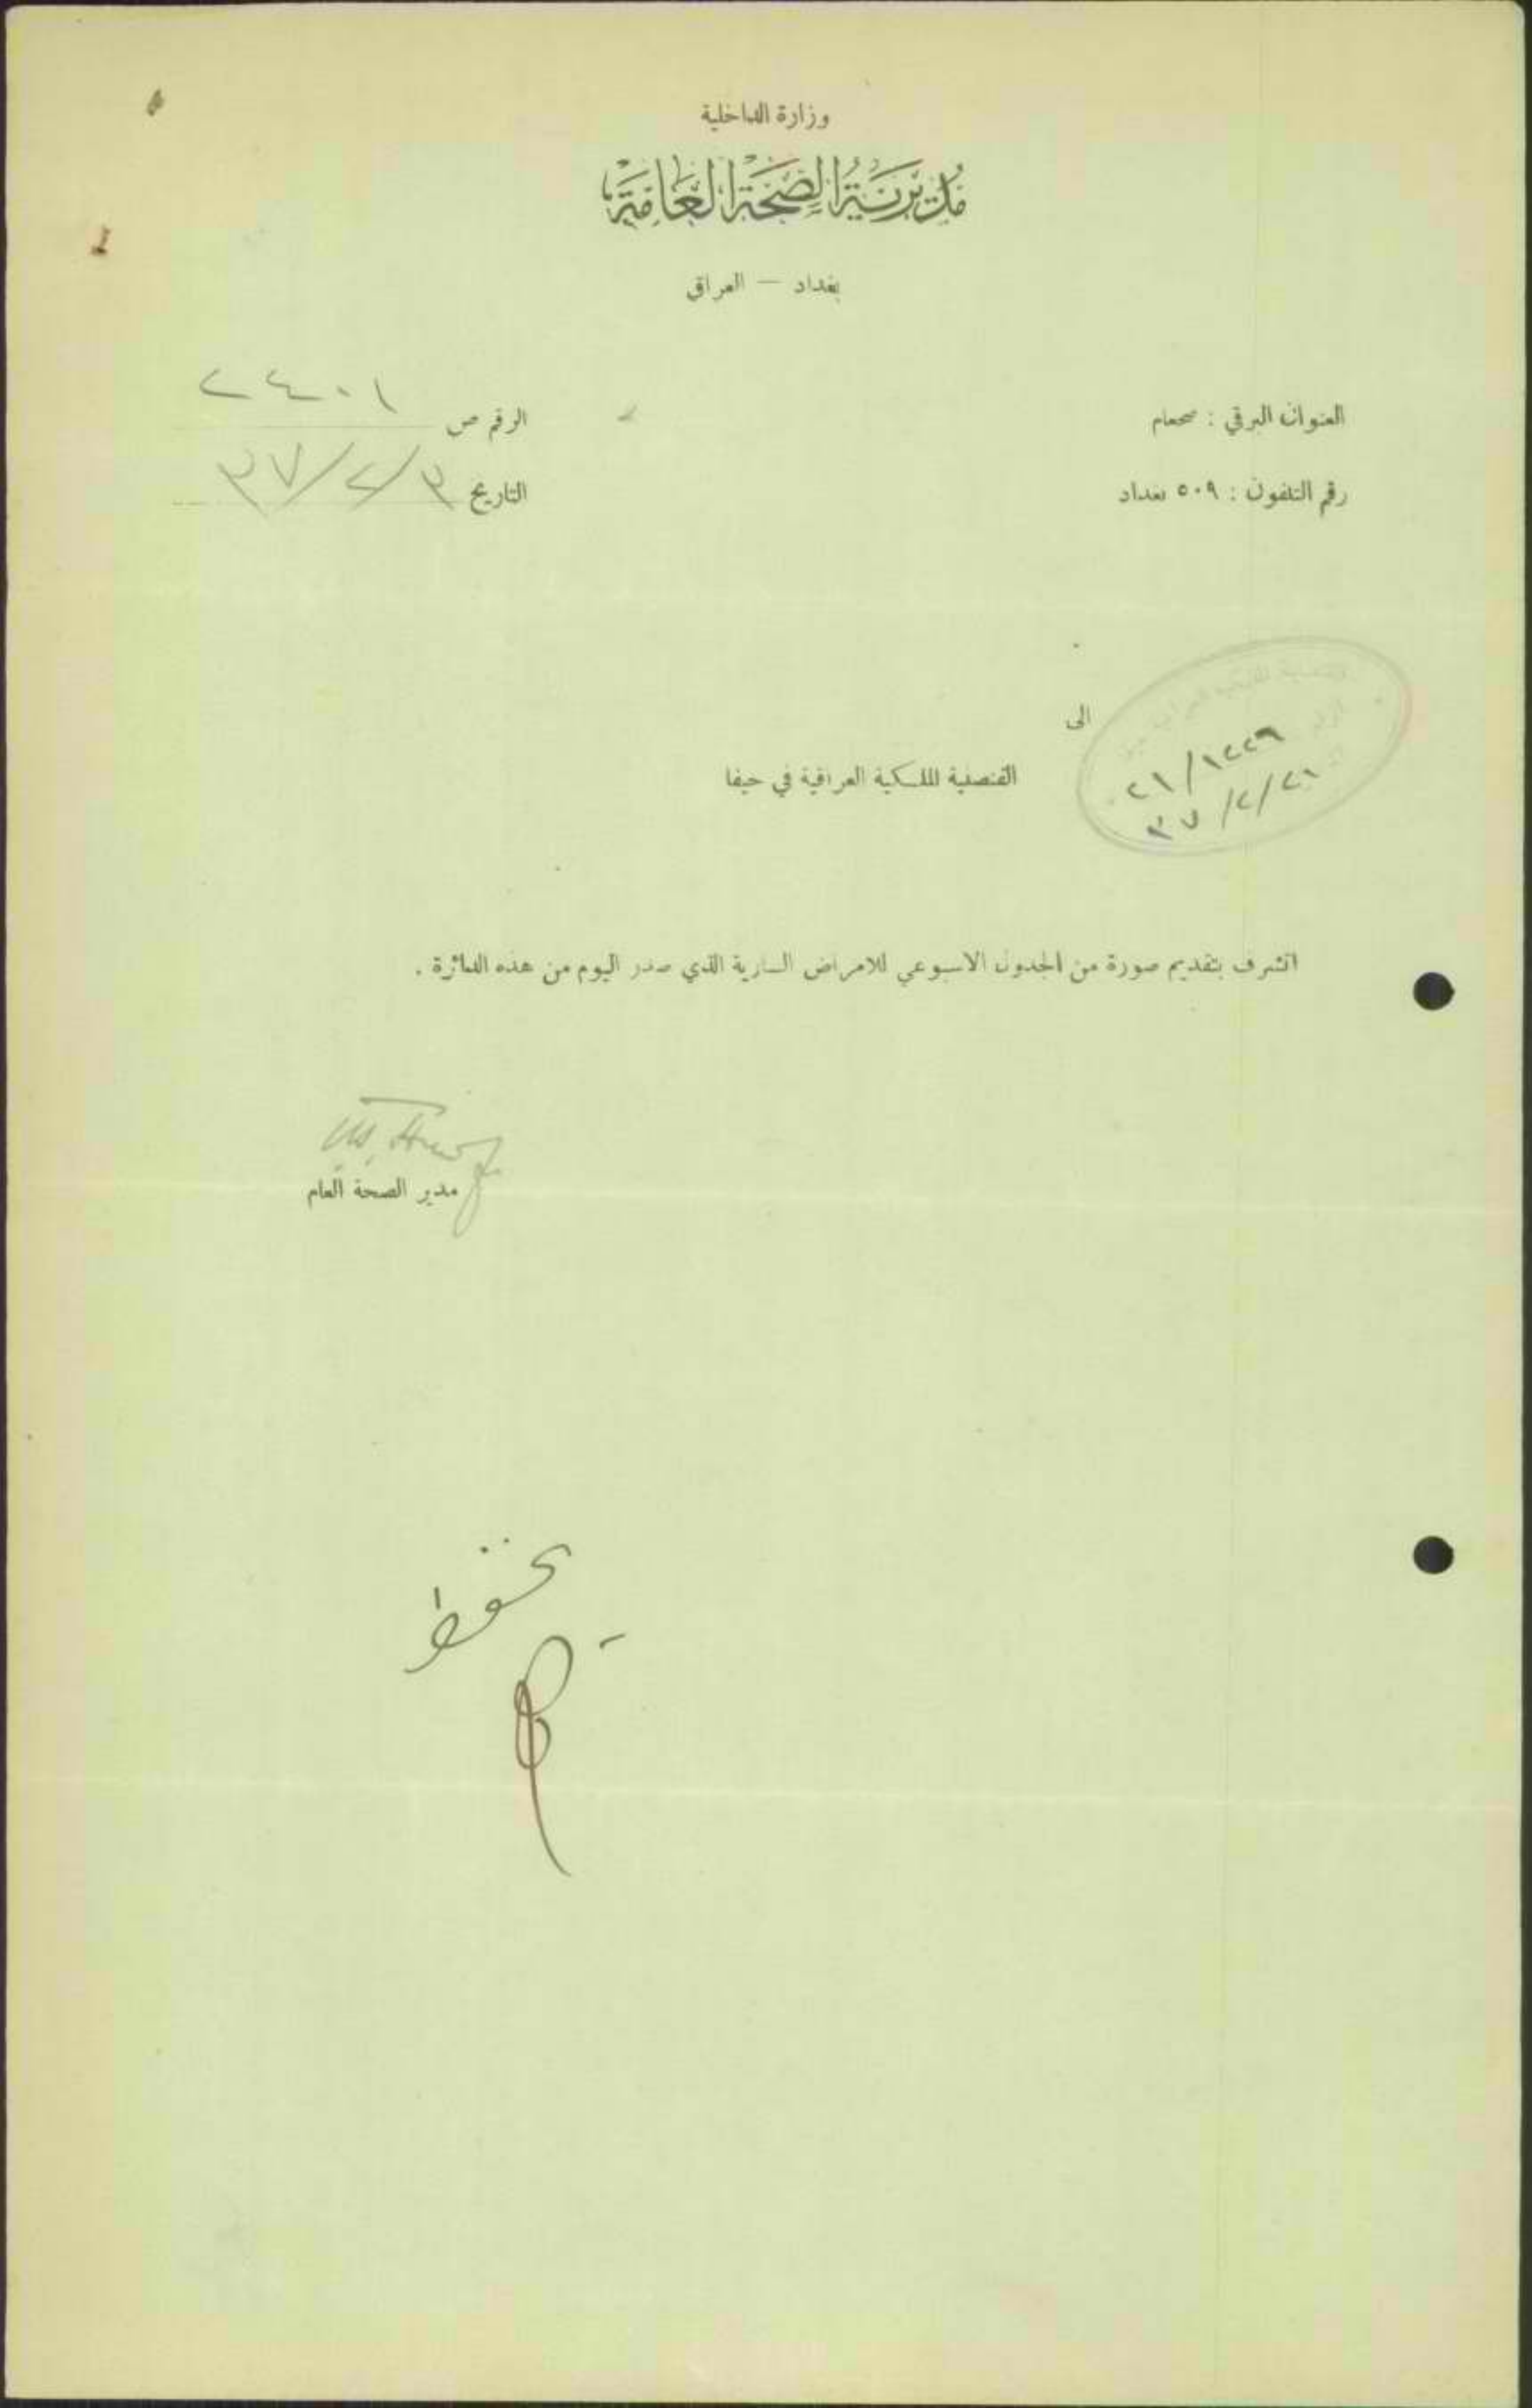 وزارة الداخلية
مُدِيْرِيَّةُ الصِّحَّةِ الْعَامَّةِ
بغداد — العراق
العنوان البرقي : صحعام
الرقم ص ٢٤٠١
رقم التلفون : ٥٠٩ بغداد
التاريخ ٣/٢/٣٧
الى
٢١/١٢٢٦
٢١/٢/٣٧
القنصلية الملكية العراقية في حيفا
اتشرف بتقديم صورة من الجدول الاسبوعي للامراض السارية الذي صدر اليوم من هذه الدائرة .
مدير الصحة العام
تحفظ